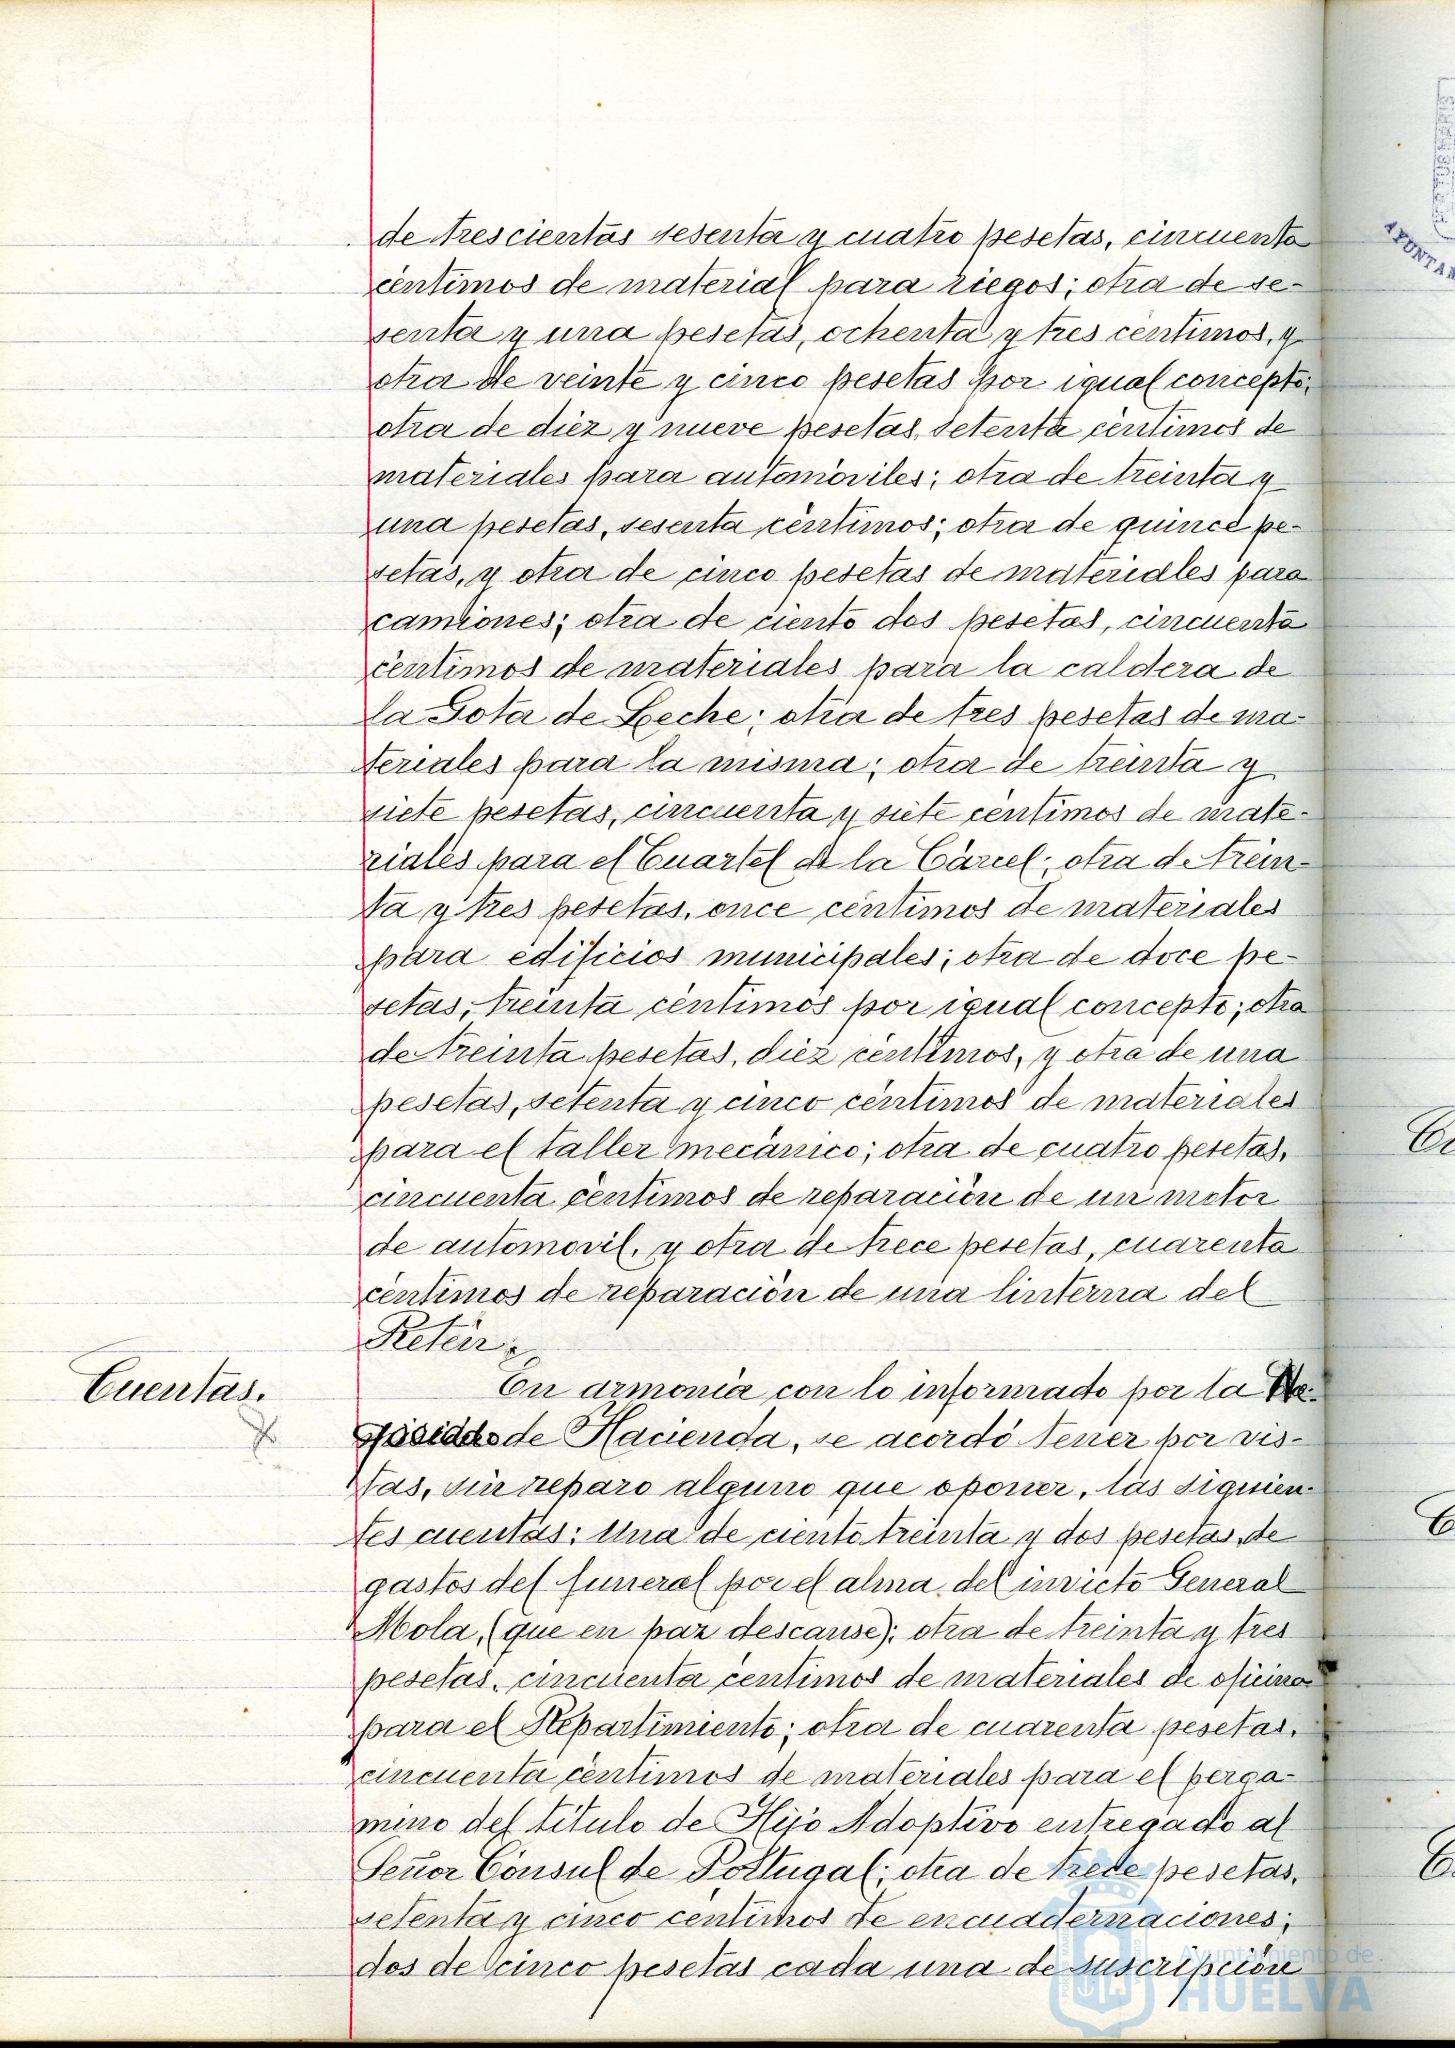 de trescientas sesenta y cuatro pesetas, cincuenta
céntimos de material para riegos; otra de se-
senta y una pesetas, ochenta y tres céntimos, y
otra de veinte y cinco pesetas por igual concepto;
otra de diéz y nueve pesetas, setenta céntimos de
materiales para automóviles; otra de treinta y
una pesetas, sesenta céntimos; otra de quince pe-
setas, y otra de cinco pesetas de materiales para
camiones; otra de ciento dos pesetas, cincuenta
céntimos de materiales para la caldera de
la Gota de Leche; otra de tres pesetas de ma-
teriales para la misma; otra de treinta y
siete pesetas, cincuenta y siete céntimos de mate-
riales para el Cuartel de la Cárcel; otra de trein-
ta y tres pesetas, once céntimos de materiales
para edificios municipales; otra de doce pe-
setas, treinta céntimos por igual concepto; otra
de treinta pesetas, diéz céntimos, y otra de una
pesetas, setenta y cinco céntimos de materiales
para el taller mecánico; otra de cuatro pesetas,
cincuenta céntimos de reparación de un motor
de automovil, y otra de trece pesetas, cuarenta
céntimos de reparación de una linterna del
Retén.
Cuentas.
En armonía con lo informado por la Ne-
de Hacienda, se acordó tener por vis-
tas, sin reparo alguno que oponer, las siguien-
tes cuentas: Una de ciento treinta y dos pesetas de
gastos del funeral por el alma del invicto General
Mola, (que en paz descanse); otra de treinta y tres
pesetas, cincuenta céntimos de materiales de oficina
para el Repartimiento; otra de cuarenta pesetas,
cincuenta céntimos de materiales para el perga-
mino del título de Hijo Adoptivo entregado al
Señor Cónsul de Portugal; otra de trece pesetas,
setenta y cinco céntimos de encuadernaciones;
dos de cinco pesetas cada una de suscripción
Ayuntamiento de
HUELVA